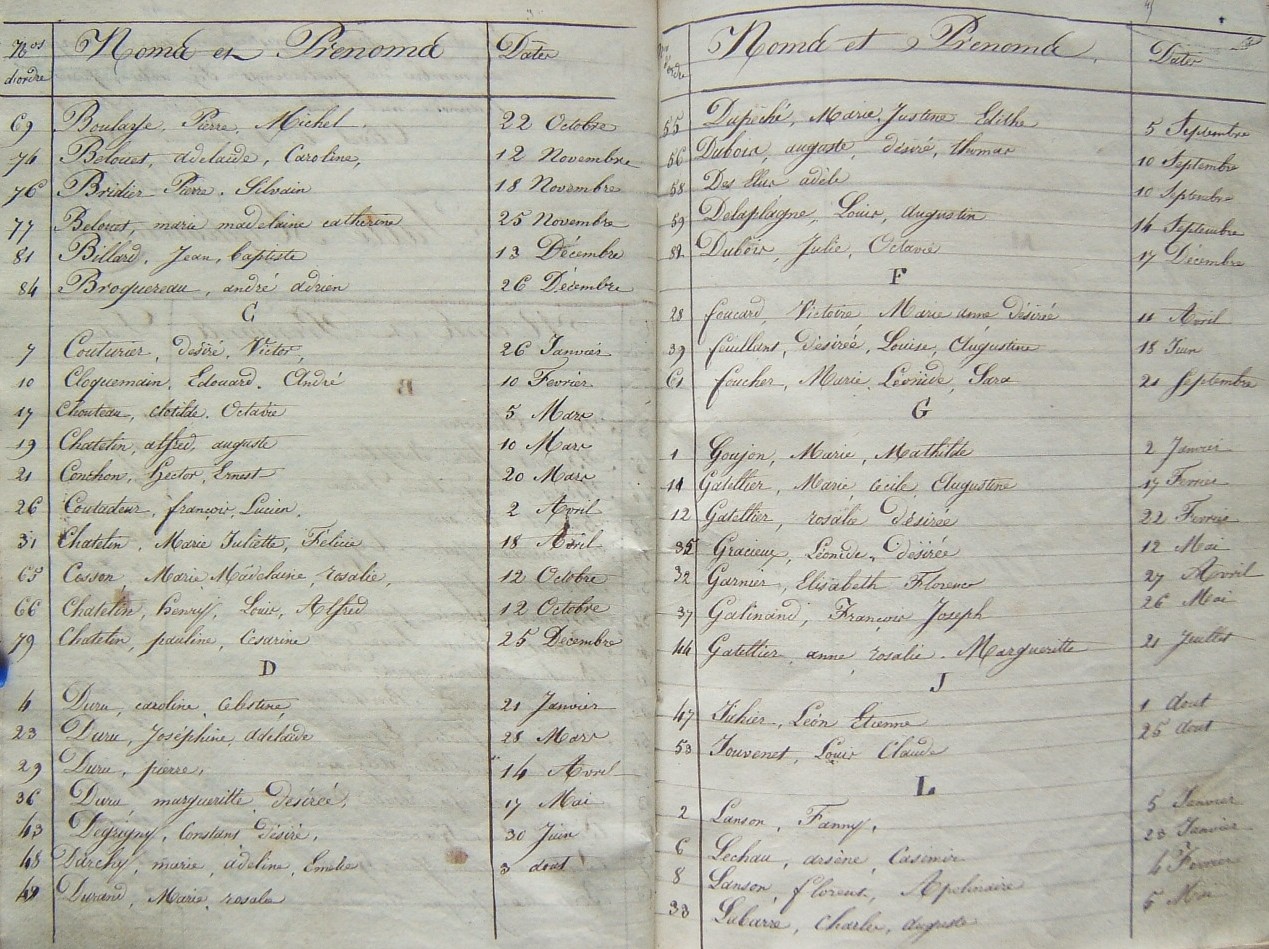 Nos d'ordre Noms et Prénoms Dates
69 Boulaye, Pierre, Michel 22 Octobre
74 Belouet, adelaïde, Caroline, 12 Novembre
76 Bridier Pierre, Silvain 18 Novembre
77 Belouet, marie madelaine catherine 25 Novembre
81 Billard, Jean, baptiste 13 Décembre
84 Broquereau, andré adrien 26 Décembre
C
7 Couturier, desiré, Victor, 26 Janvier
10 Cloquemain, Edouard, André 10 Fevrier
17 Chouteau, clotilde, Octavie 5 Mars
19 Chatelin, alfred, auguste 10 Mars
21 Conchon, hector, Ernest 20 Mars
26 Coutadeur, françois, Lucien, 2 Avril
31 Chatelin, Marie Juliette, Félicie 18 Avril
65 Cosson, Marie Madelaine, rosalie, 12 Octobre
66 Chatelin, henry, Louis, Alfred 12 Octobre
79 Chatelin, pauline, Cesarine 25 Décembre
D
4 Duru, caroline, Celestine 21 Janvier
23 Duru, Joséphine, adélaide 28 Mars
29 Duru, pierre, 14 Avril
36 Duru, margueritte desirée, 17 Mai
43 Degrigny, Constant, Désiré, 30 Juin
48 Darchy, marie, adeline, Emelie 3 aout
49 Durand, Marie, rosalie
d'ordre Noms et Prénoms Dates
55 Dupéché, Marie, Justine Edithe 5 Septembre
56 Dubois, auguste, désiré, thomas 10 Septembre
58 Des adèle 10 Septembre
59 Delaplagne, Louis, Augustin 14 Septembre
82 Dubois, Julie, Octavie 17 Décembre
F
28 foucard, Victoire Marie anne Désirée 11 Avril
39 feuillant, Désirée, Louise, Augustine 18 Juin
61 foucher, Marie, Léonide, Sara 21 Septembre
G
1 Goujon, Marie, Mathilde 2 Janvier
11 Gatellier, Marie, Cecile, Augustine 17 Fevrier
12 Gatellier, rosalie désirée 22 Fevrier
35 Gracieux, Léonide, désirée 12 Mai
32 Garnier, Elisabeth Florence 27 Avril
37 Galinand, François Joseph 26 Mai
44 Gatellier, anne rosalie, Margueritte 21 Juillet
J
47 Léon Etienne 1 Aout
53 Jouvenet, Louis Claude 25 Aout
L
2 Lanson, Fanny, 5 Janvier
6 Lechau, arsène, Casimir 23 Janvier
8 Lanson, florent, Apolinaire 4 Fevrier
33 Labarre, Charles, auguste 5 Mai